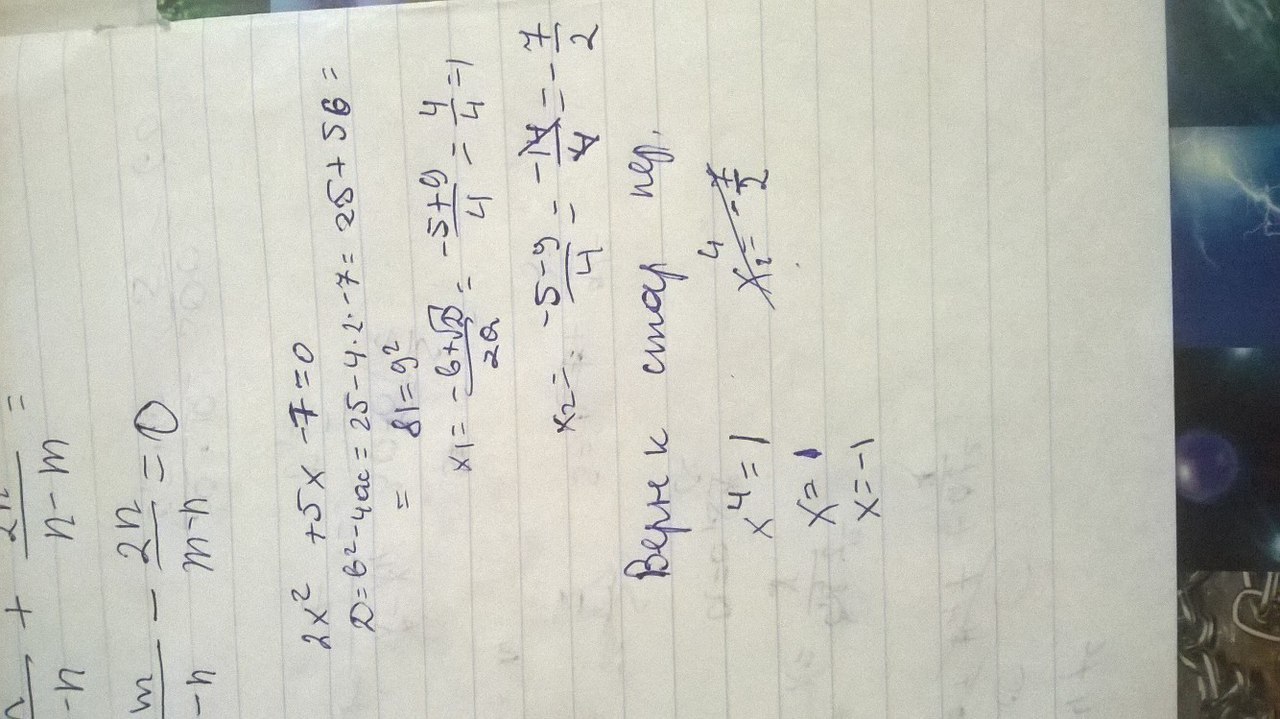 + 2n/n-m =
m/-n - 2n/m-n = 0
2x² + 5x - 7 = 0
D = b² - 4ac = 25 - 4·2·-7 = 25 + 56 =
= 81 = 9²
x1 = -b+√D/2a = -5+9/4 = 4/4 = 1
x2 = -5-9/4 = -14/4 = -7/2
Верн к стар пер.
x⁴ = 1 x₂⁴ = -7/2
x = 1
x = -1